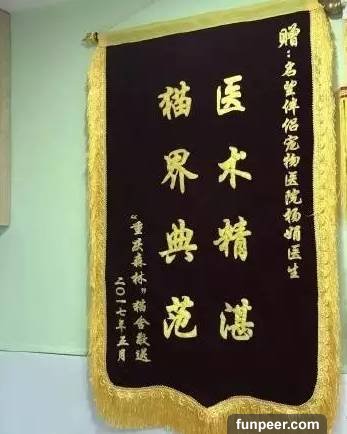 赠：名望伴侣宠物医院杨娟医生
医术精湛
猫界典范
“重庆森林”猫舍敬送
二〇一七年五月
funpeer.com